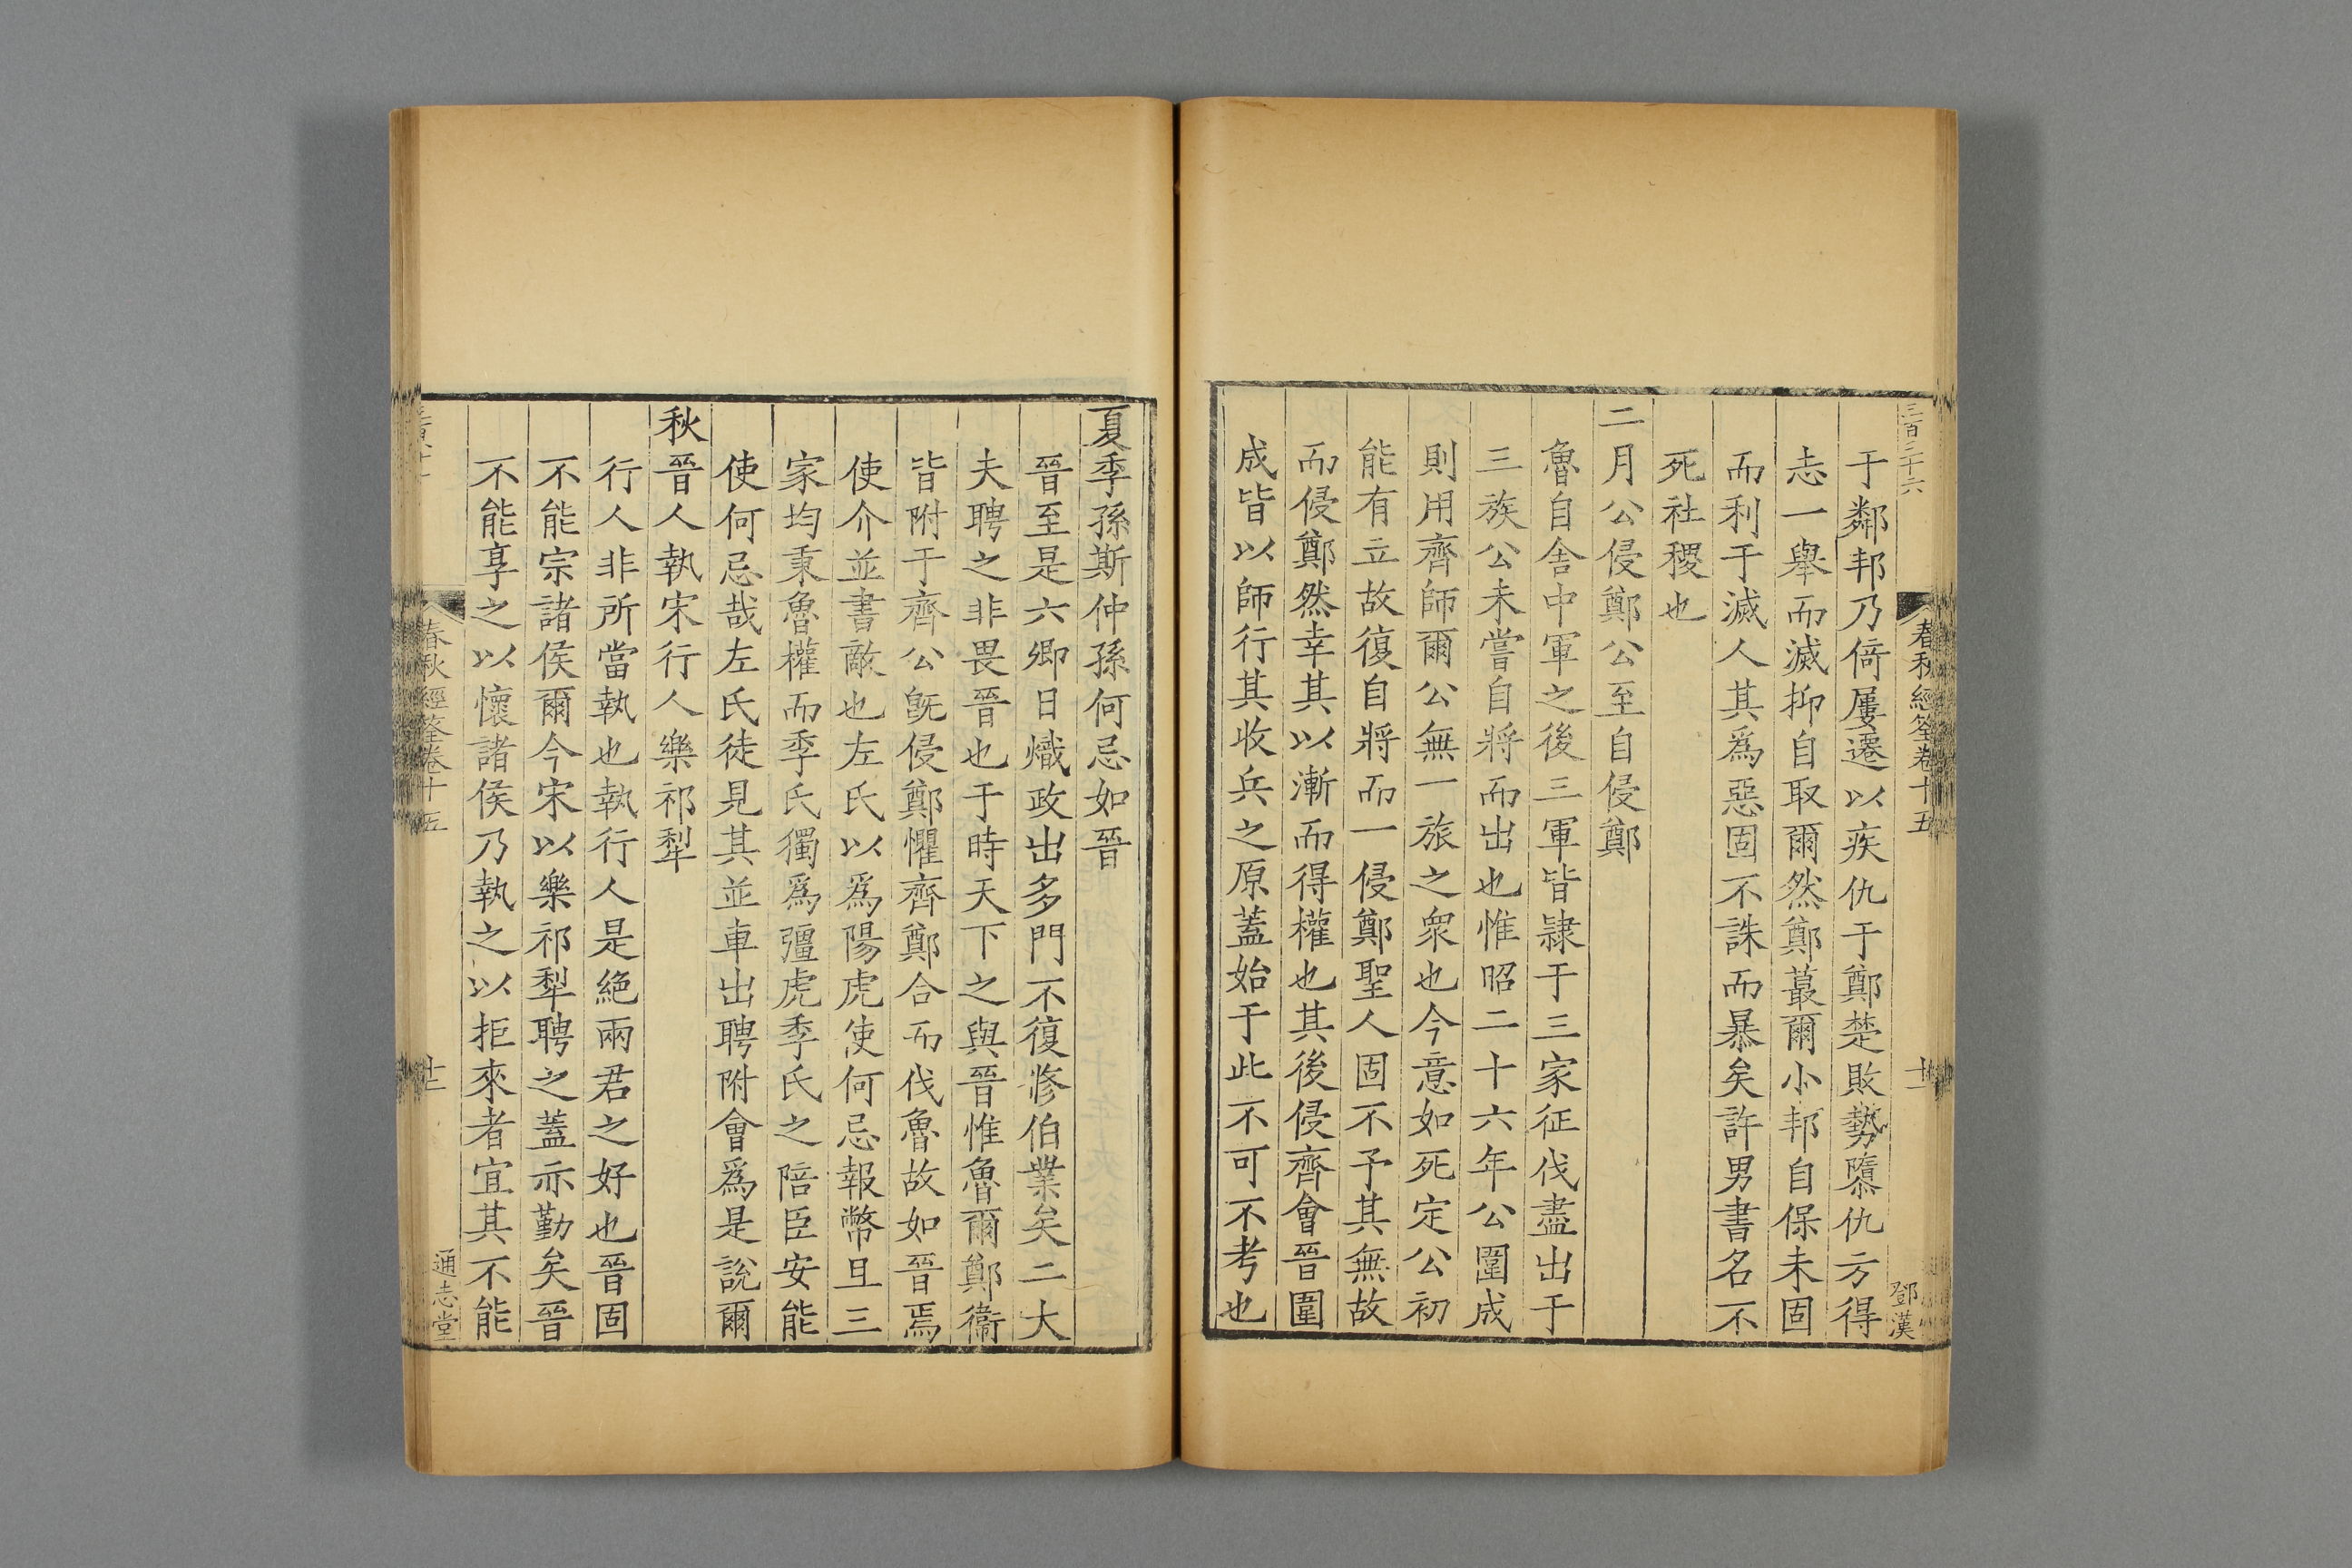 三百三十六
春秋經筌卷十五
十二
鄧漢
于鄰邦乃倚屢遷以疾仇于鄭楚敗勢隳仇方得
志一舉而滅抑自取爾然鄭蕞爾小邦自保未固
而利于滅人其爲惡固不誅而暴矣許男書名不
死社稷也
二月公侵鄭公至自侵鄭
魯自舍中軍之後三軍皆隸于三家征伐盡出于
三族公未嘗自將而出也惟昭二十六年公圍成
則用齊師爾公無一旅之衆也今意如死定公初
能有立故復自將而一侵鄭聖人固不予其無故
而侵鄭然幸其以漸而得權也其後侵齊會晉圍
成皆以師行其收兵之原蓋始于此不可不考也
夏季孫斯仲孫何忌如晉
晉至是六卿日熾政出多門不復修伯業矣二大
夫聘之非畏晉也于時天下之與晉惟魯爾鄭衞
皆附于齊公旣侵鄭懼齊鄭合而伐魯故如晉焉
使介並書敵也左氏以爲陽虎使何忌報幣且三
家均秉魯權而季氏獨爲彊虎季氏之陪臣安能
使何忌哉左氏徒見其並車出聘附會爲是說爾
秋晉人執宋行人樂祁犂
行人非所當執也執行人是絕兩君之好也晉固
不能宗諸侯爾今宋以樂祁犂聘之蓋亦勤矣晉
不能享之以懷諸侯乃執之以拒來者宜其不能
春秋經筌卷十五
通志堂